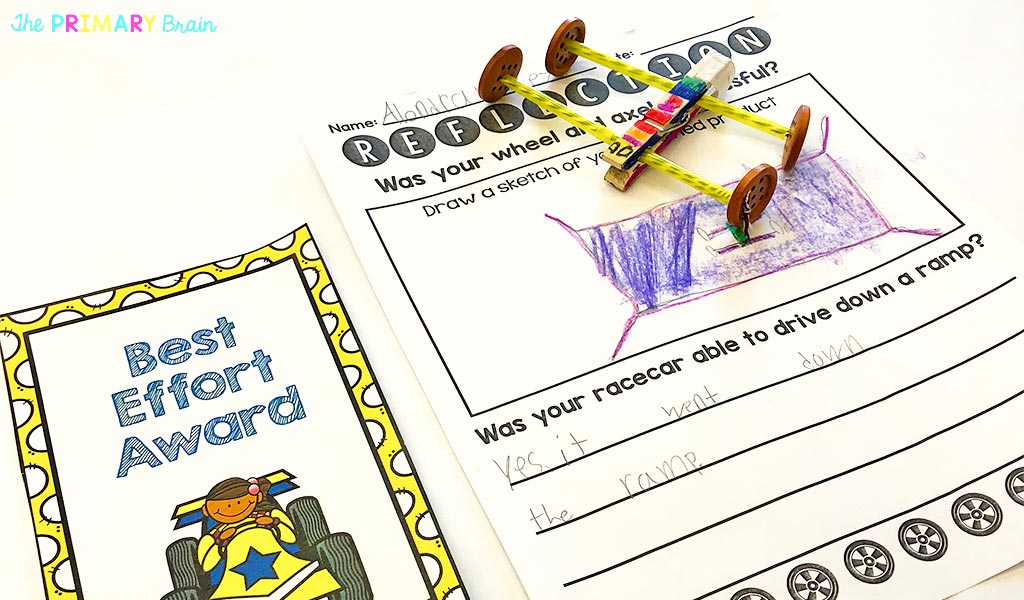 The PRIMARY Brain
Name: Alondra te:
REFLECTION
Was your wheel and axel sful?
Draw a sketch of yo ed product
Was your racecar able to drive down a ramp?
Yes, it went down
the ramp
Best
Effort
Award